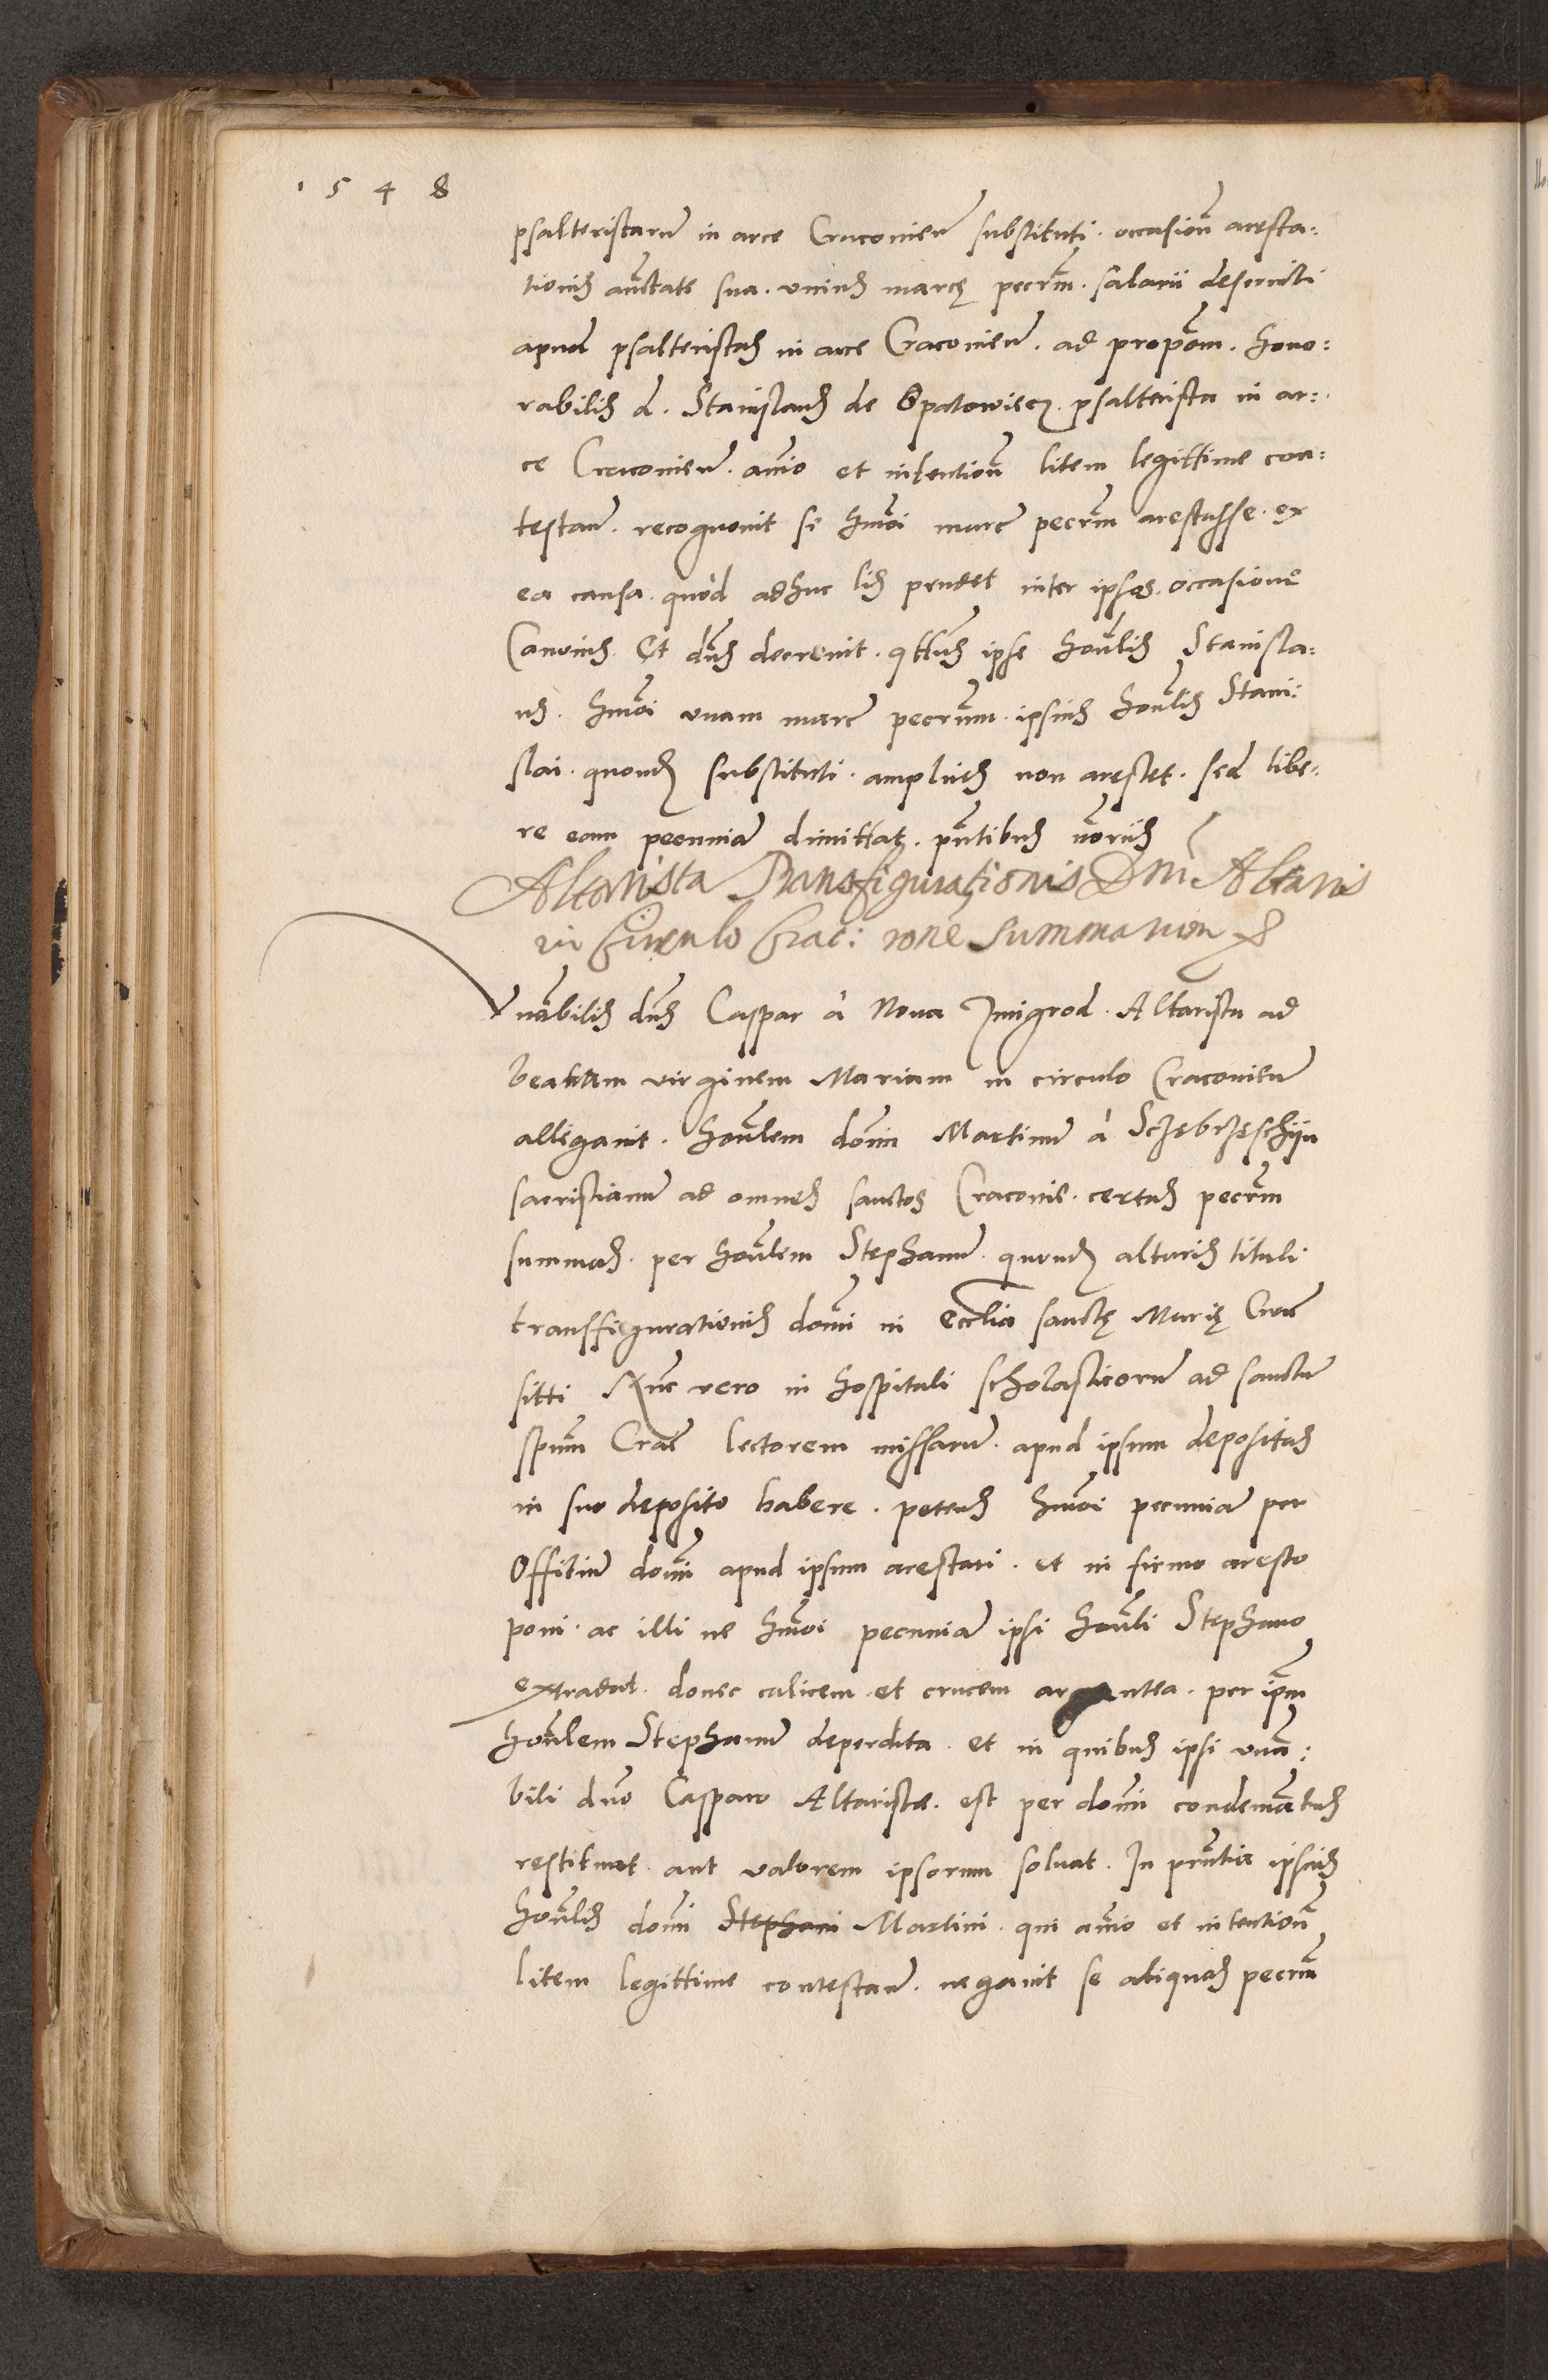 1548
psalteristarum in arce Cracovien substituti. occasioñ aresta:
tionis aũctate sua. vnius marcę pecrm̃. salarii deserviti
apud psalteristas in arce Cracovien. ad propõem. hono:
rabilis d. Stanislaus de Opatowiecz. psalterista in ar:
ce Cracovien. anĩo et intentioñ litem legittime con:
testan. recognovit se hmõi marc pecrm̃ arestasse. ex
ea causa. quòd adhuc lis pendet inter ipsos. occasione
Canonis. Et dñs decrevit. qťtus ipse hoñlis Stanisla:
us. hmõi vnam marc pecrum̃. ipsius hoñlis Stani:
slai. quondam substituti. amplius non arestet. sed libe:
re eam pecuniã dimittat. pñtibus
Altarista Transfigurationis Dnĩ Altaris
in Circulo Crac: rõne summarum
Veñabilis dñs Caspar à Nova Zmigrod. Altarista ad
beatam virginem Mariam in circulo Cracovien
allegavit. hoñlem domĩ Martinũ à Sczebrzeschyn
sacristianũ ad omnes sanctos Cracovie. certas pecrm̃
summas. per hoñlem Stephanũ. quondam altaris tituli
transffigurationis domĩ in ecclia sanctę Marię Crac
sitti Nũc vero in hospitali scholasticorũ ad sanctũ
spum̃ Crac lectorem missarũ. apud ipsum depositas
in suo deposito habere. petens hmõi pecuniã per
Offitiũ domĩ apud ipsum arestari. et in firmo aresto
poni. ac illi ne hmõi pecuniã ipsi hoñli Stephano
extradat. donec calicem et crucem argentea. per ipm̃
hoñlem Stephanũ deperdita. et in quibus ipsi veñã:
bili dño Casparo Altaristæ. est per domĩ condemnatus
restituat. aut valorem ipsorum solvat. In pñtia ipsius
hoñlis domĩ Stephani Martini. qui anĩo et intentioñ
litem legittime contestan. negavit se aliquas pecrm̃